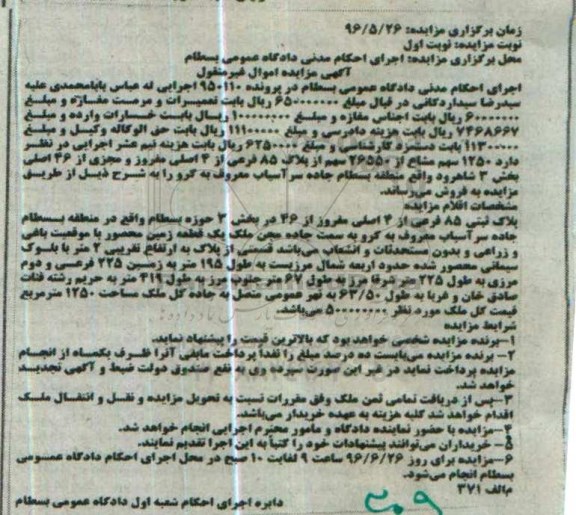 زمان برگزاری مزایده: ۹۶/۵/۲۶
نوبت مزایده: نوبت اول
محل برگزاری مزایده: اجرای احکام مدنی دادگاه عمومی بسطام
آگهی مزایده اموال غیرمنقول
اجرای احکام مدنی دادگاه عمومی بسطام در پرونده ۹۵۰۱۱۰ اجرایی له عباس بابامحمدی علیه
سیدرضا سیداردکانی در قبال مبلغ ۶۵۰۰۰۰۰۰۰ ریال بابت تعمیرات و مرمت مغازه و مبلغ
۶۰۰۰۰۰۰۰ ریال بابت اجناس مغازه و مبلغ ۱۰۰۰۰۰۰۰ ریال بابت خسارات وارده و مبلغ
۷۴۶۸۶۶۷ ریال بابت هزینه دادرسی و مبلغ ۱۱۱۰۰۰۰۰ ریال بابت حق الوکاله وکیل و مبلغ
۱۱۳۰۰۰۰۰ بابت دستمزد کارشناسی و مبلغ ۶۲۵۰۰۰۰ ریال بابت هزینه نیم عشر اجرایی در نظر
دارد ۱۲۵۰ سهم مشاع از ۲۶۵۵۰ سهم از پلاک ۸۵ فرعی از ۴ اصلی مفروز و مجزی از ۴۶ اصلی
بخش ۳ شاهرود واقع منطقه بسطام جاده سرآسیاب معروف به گرو را به شرح ذیل از طریق
مزایده به فروش می‌رساند.
مشخصات اقلام مزایده
پلاک ثبتی ۸۵ فرعی از ۴ اصلی مفروز از ۴۶ در بخش ۳ حوزه بسطام واقع در منطقه بسطام
جاده سرآسیاب معروف به گرو به سمت جاده مجن ملک یک قطعه زمین محصور با موقعیت باغی
و زراعی و بدون مستحدثات و انشعاب می‌باشد قسمتی از پلاک به ارتفاع تقریبی ۲ متر با بلوک
سیمانی محصور شده حدود اربعه شمال مرزیست به طول ۱۹۵ متر به زمین ۲۲۵ فرعی و دوم
مرزی به طول ۲۲۵ متر شرقا مرز به طول متر جنوب مرز به طول ۴۱۹ متر به حریم رشته قنات
صادق خان و غربا به طول ۶۳/۵۰ به نهر عمومی متصل به جاده کل ملک مساحت ۱۲۵۰ مترمربع
قیمت کل ملک مورد نظر ۵۰۰۰۰۰۰۰۰ می‌باشد.
شرایط مزایده
۱-برنده مزایده شخصی خواهد بود که بالاترین قیمت را پیشنهاد نماید.
۲- برنده مزایده می‌بایست ده درصد مبلغ را نقدا پرداخت مابقی آنرا ظرف یکماه از انجام
مزایده پرداخت نماید در غیر این صورت سپرده وی به نفع صندوق دولت ضبط و آگهی تجدید
خواهد شد.
۳-پس از دریافت تمامی ثمن ملک وفق مقررات نسبت به تحویل مزایده و نقل و انتقال ملک
اقدام خواهد شد کلیه هزینه به عهده خریدار می‌باشد.
۴-مزایده با حضور نماینده دادگاه و مامور محترم اجرایی انجام خواهد شد.
۵- خریداران می‌توانند پیشنهادات خود را کتباً به این اجرا تقدیم نمایند.
۶-مزایده برای روز ۹۶/۶/۲۶ ساعت ۹ لغایت ۱۰ صبح در محل اجرای احکام دادگاه عمومی
بسطام انجام می‌شود.
م‌الف ۳۷۱
دایره اجرای احکام شعبه اول دادگاه عمومی بسطام
۲۰۹